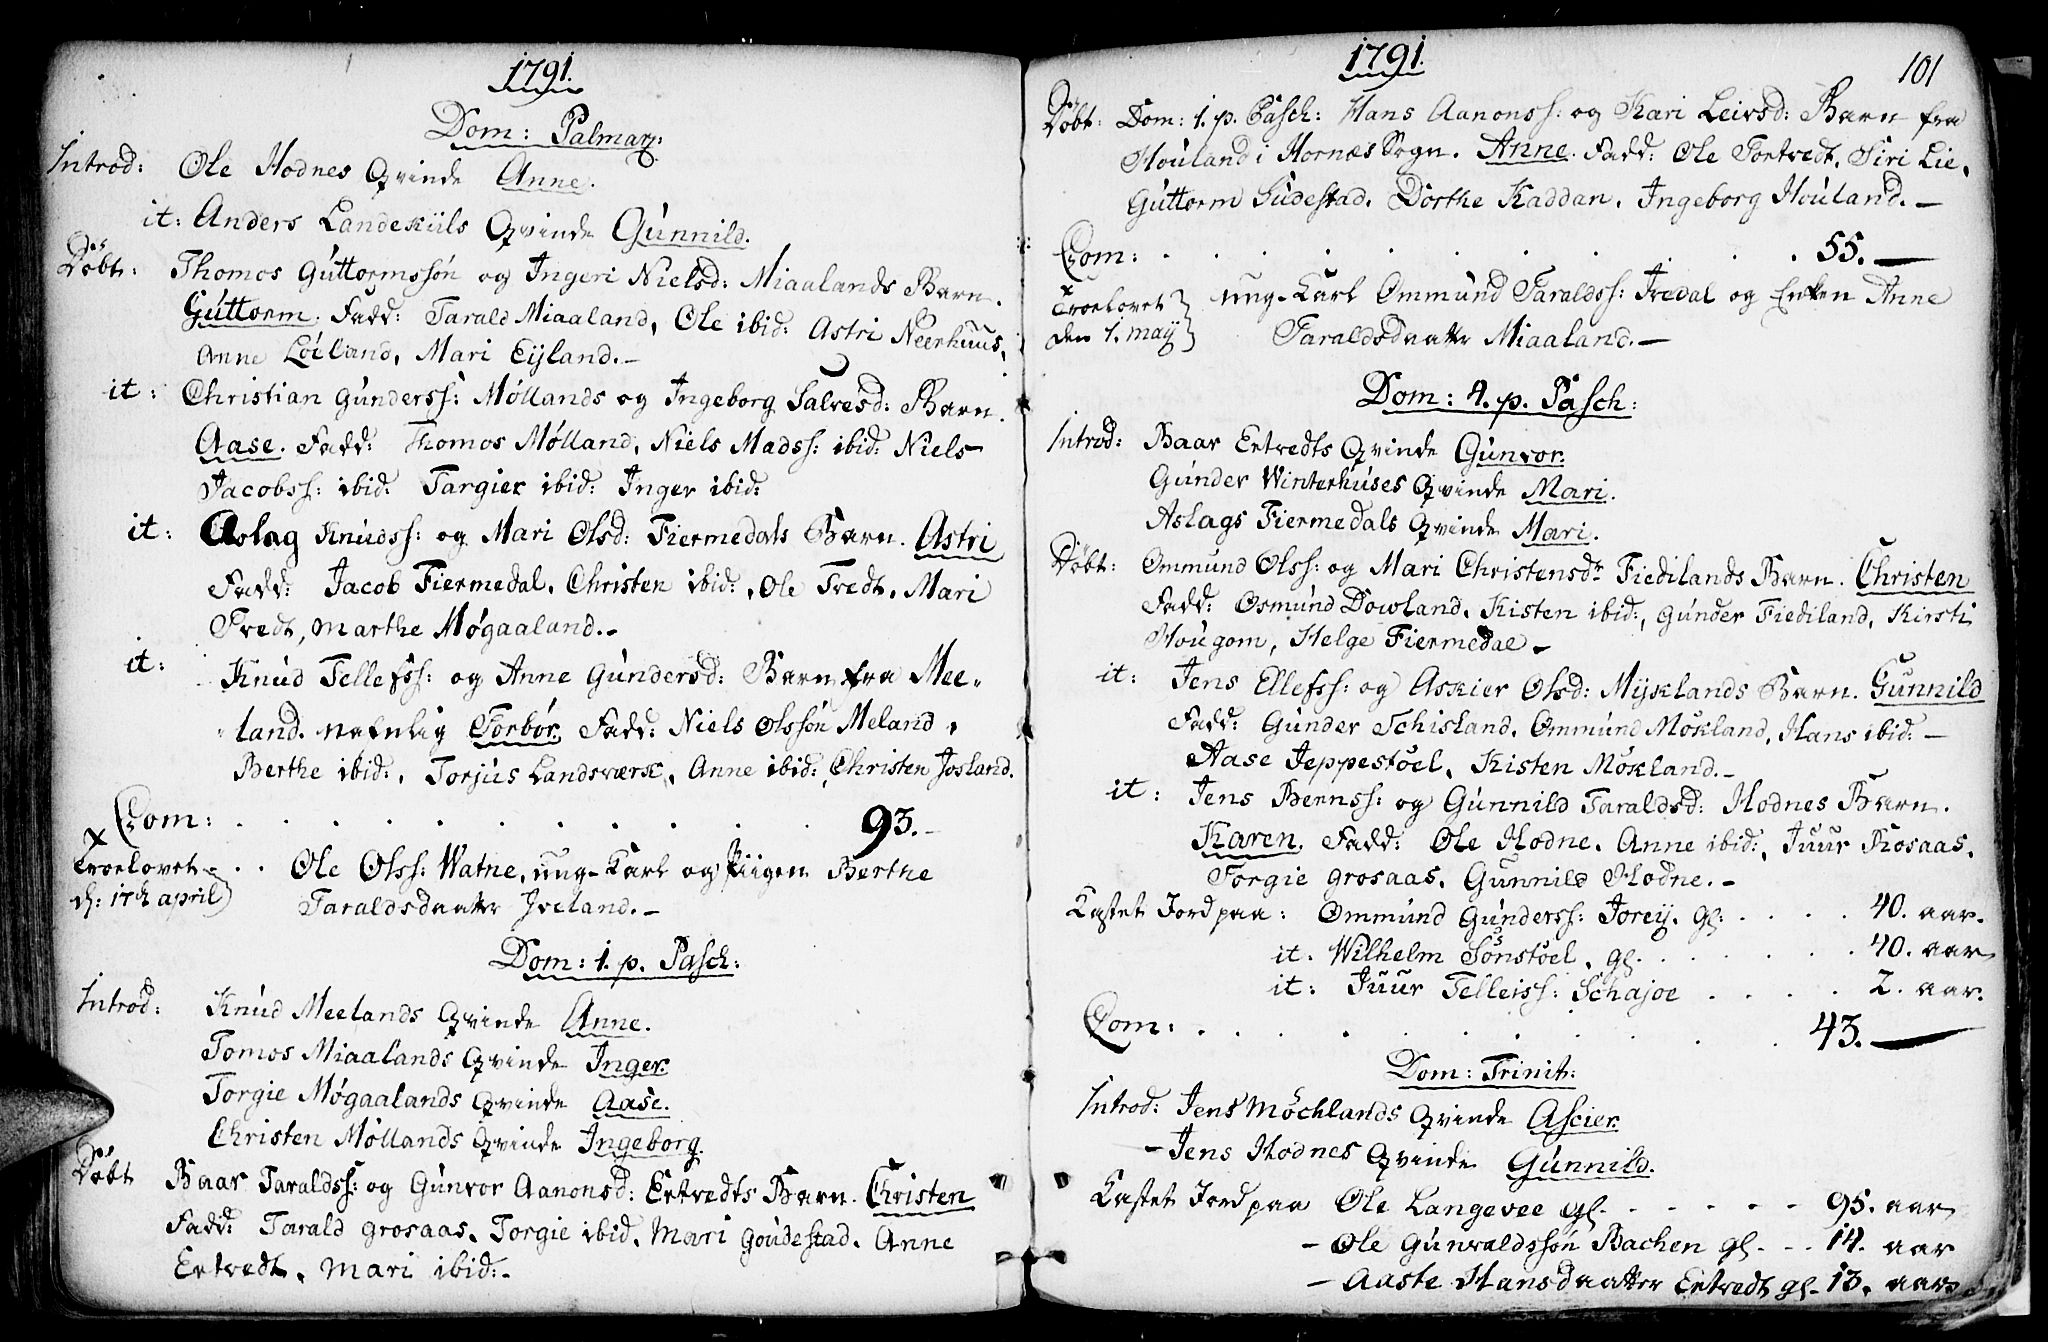 1791.
Dom: Palmar:
Introd: Ole Hodnes Qvinde Anne.
it: Anders Landekiils Qvinde Gunnild.
Døbt: Thomos Guttormssøn og Ingeri Nielsd: Miaalands Barn.
Guttorm. Fadd: Tarald Miaaland, Ole ibid: Astri Neerhuus,
Anne Løiland, Mari Eyland.-
it: Christian Gunderss: Møllands og Ingeborg Salvesd: Barn.
Aase. Fadd: Thomos Mølland, Niels Madss: ibid: Niels
Jacobss: ibid: Targier ibid: Inger ibid:
it: Aslag Knudss: og Mari Olsd: Fiermedals Barn. Astri
Fadd: Jacob Fiermedal, Christen ibid:, Ole Tredt, Mari
Tredt, Marthe Møgaaland.-
it: Knud Tellefss: og Anne Gundersd: Barn fra Mee-
land. nafnlig Torbør. Fadd: Niels Olssøn Meland,
Berthe ibid:, Torjus Landsværk, Anne ibid:, Christen Josland.
Com: . . . . . . . . . . 93.-
Troelovet - . . Ole Olss: Watne, ung-Karl og Piigen Berthe
d: 17de april) Taraldsdaatter Iveland.-
Dom: 1. p. Pasch:
Introd: Knud Meelands Qvinde Anne.
Tomos Miaalands Qvinde Inger.
Torgie Møgaalands Qvinde Aase.
Christen Møllands Qvinde Ingeborg.
Døbt Baar Taraldss: og Gunvor Aanonsd: Ertvedts Barn. Christen
Fadd: Tarald Grosaas, Torgie ibid, Mari Goudestad, Anne
Ertvedt, Mari ibid:-
1791.
101
Døbt: Dom: 1. p. Pasch: Hans Aanonss: og Kari Leivsd: Barn fra
Houland i Hornæs Sogn. Anne. Fadd: Ole Tortvedt, Siri Lie,
Guttorm Sudestad, Dorthe Kaddan, Ingeborg Houland.-
Com: . . . . . . . . . 55.-
Troelovet } ung-Karl Ommund Taraldss: Iredal og Enken Anne
den 1. may } Taraldsdaatter Miaaland.-
Dom: 4. p. Pasch:
Introd: Baar Ertvedts Qvinde Gunvor.
Gunder Winterhuses Qvinde Mari.
Aslags Fiermedals Qvinde Mari.
Døbt: Ommund Olss: og Mari Christensdr Fiedilands Barn. Christen
Fadd: Osmund Dowland, Kisten ibid:, Gunder Fiediland, Kirsti
Hougom, Helge Fiermedal-
it: Jens Ellefss: og Askier Olsd: Myklands Barn. Gunnild
Fadd: Gunder Schisland, Ommund Møkland, Hans ibid:-
Aase Jeppestøel, Kisten Møkland.-
it: Jens Bernss: og Gunnild Taraldsd: Hodnes Barn.
Karen. Fadd: Ole Hodne, Anne ibid:, Juur Rosaas,
Torgie Grosaas, Gunnild Hodne.-
Kastet Jord paa: Ommund Gunderss: Jorey, gl: . . . . 40. aar.
it. Wilhelm Sønstøel, gl. . . . . . . 40. aar
it: Juur Telleiss: Schajoe . . . . 2. aar.
Com: . . . . . . . . . 43.-
Dom: Trinit:
Introd: Jens Møchlands Qvinde Ascier.
- Jens Hodnes Qvinde Gunnild.
Kastet Jord paa Ole Langevee gl. - - - - - 95. aar
- Ole Gunvaldssøn Bachen gl. - - 14. aar
- Aaste Hansdaatter Ertvedt gl. 13. aar